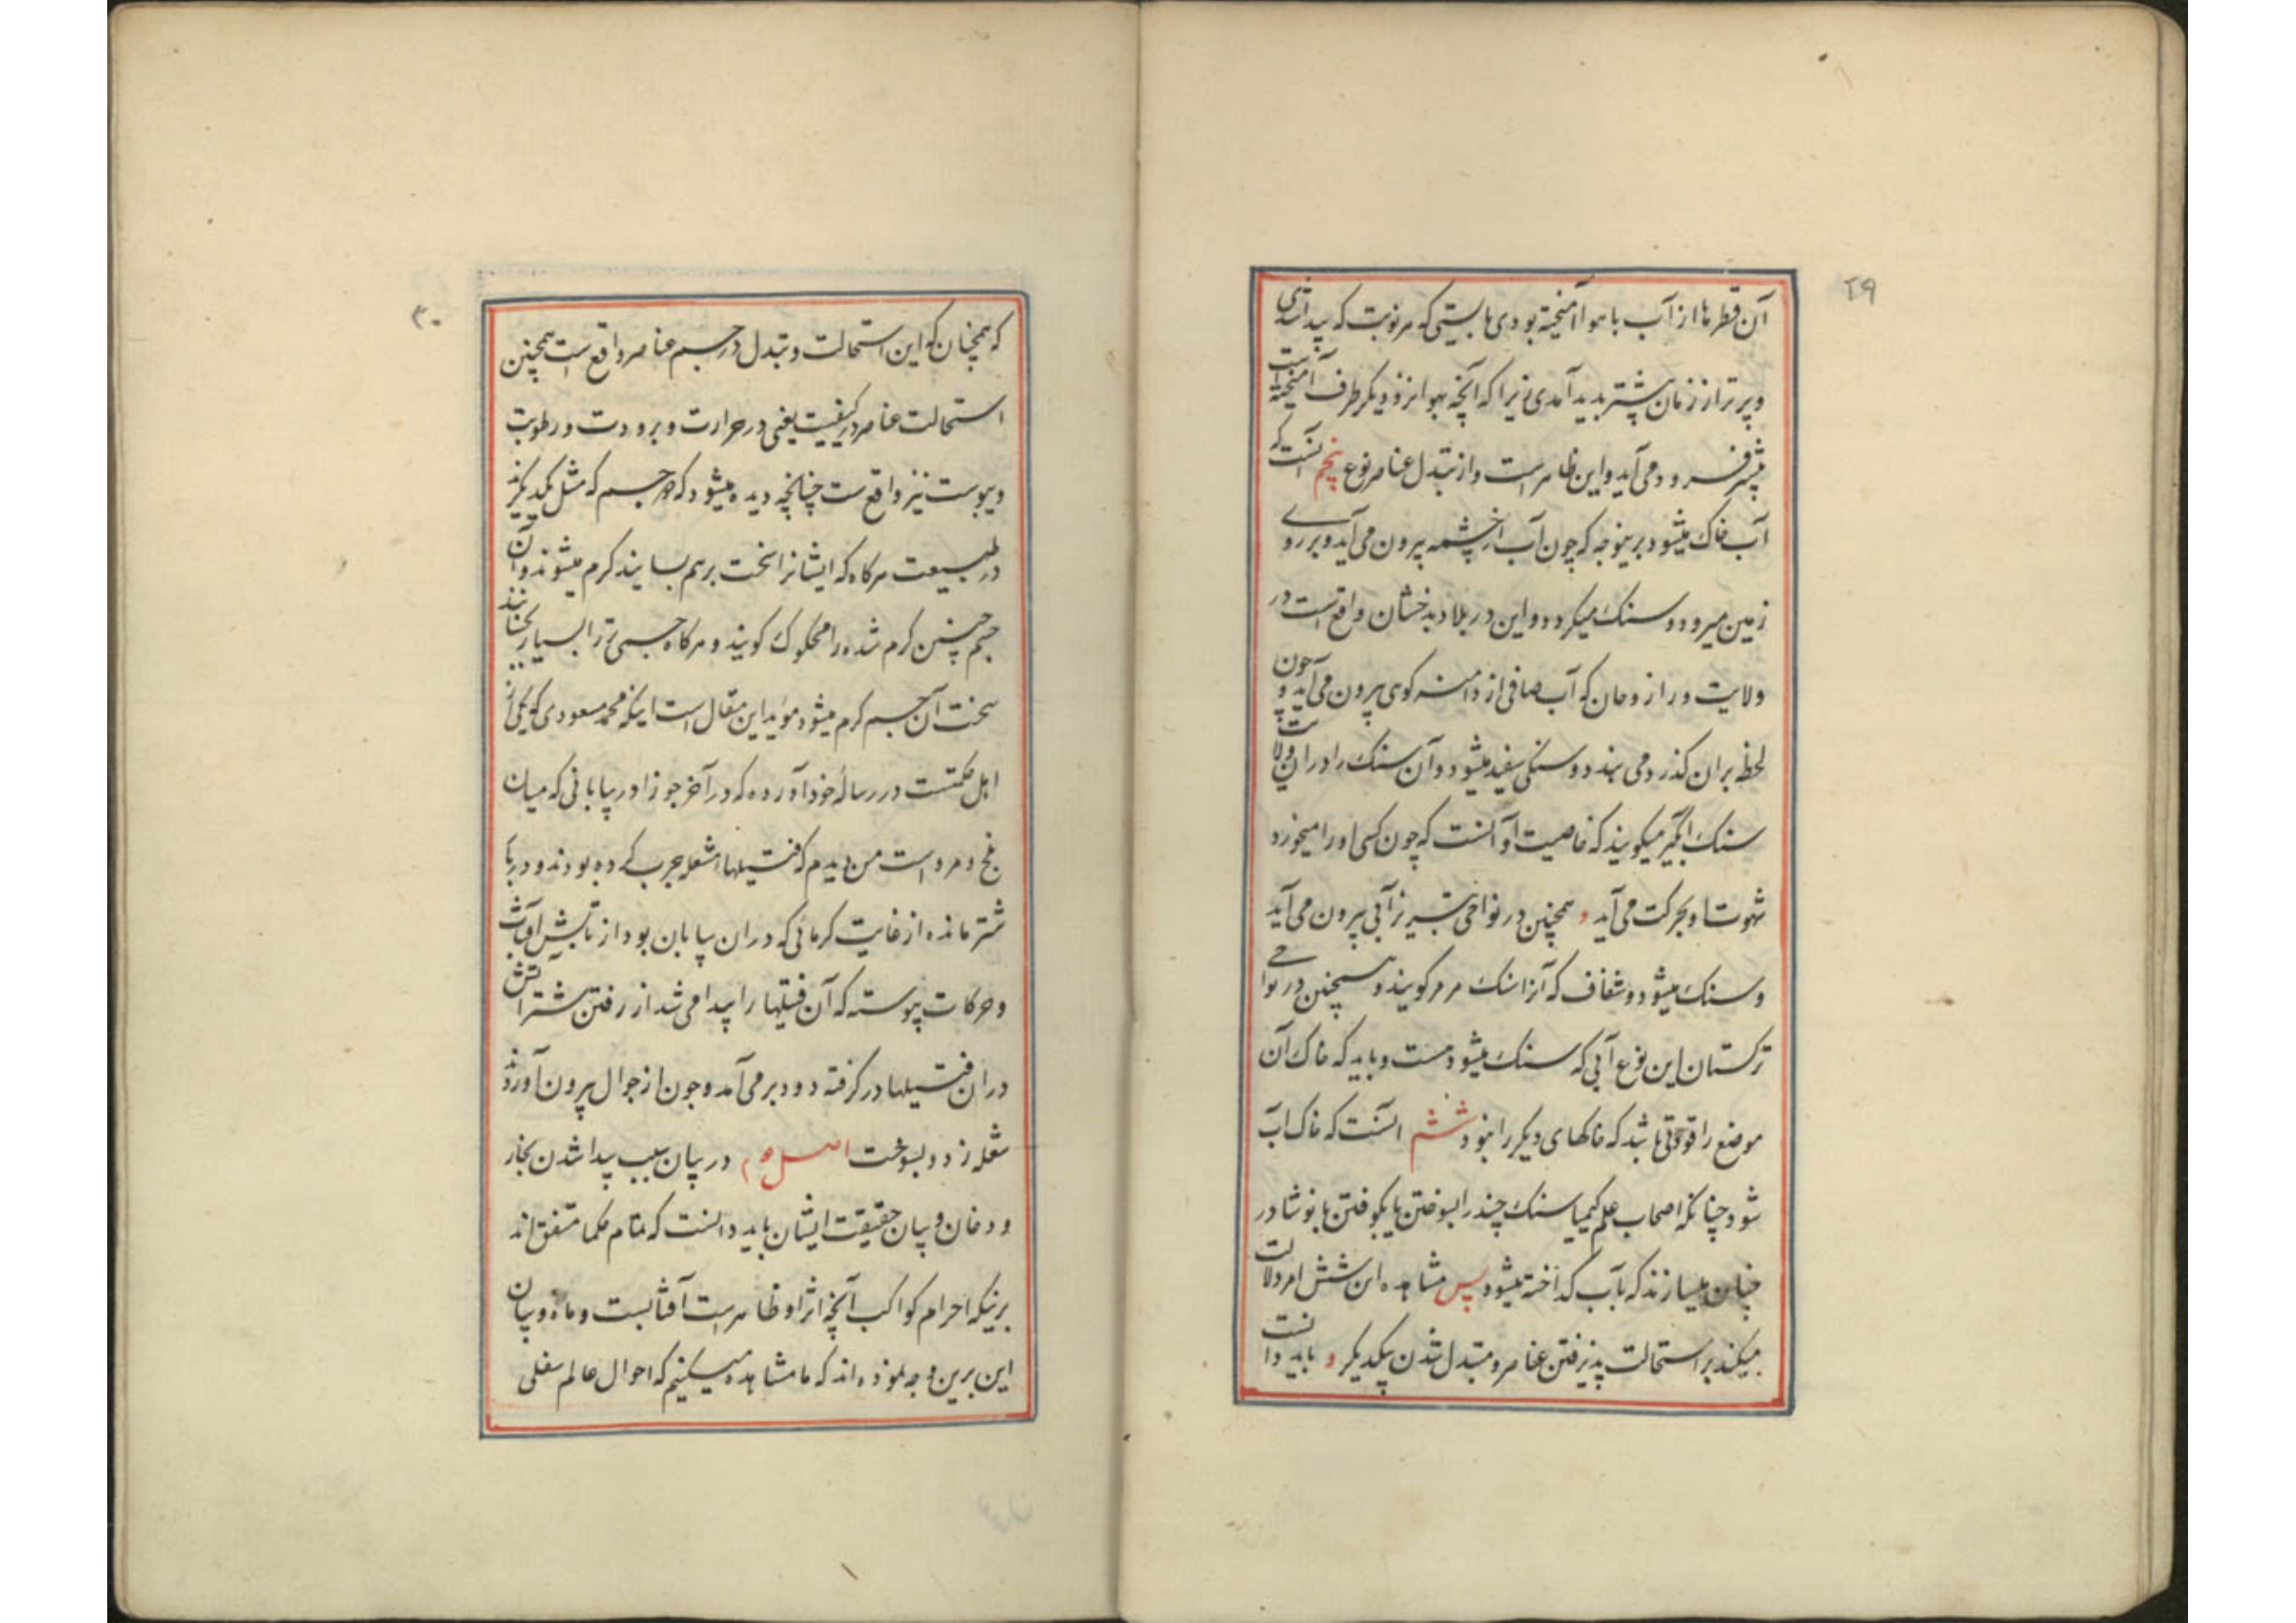 ۲۹
آن قطرها از آب با هوا آمیخته بودی بایستی که هر نوبت که پیدا شدی
و پرتر از زمان پیشتر بدید آمدی زیرا که آنچه بهوا نزدیکتر طرف آمیخته است
پیشتر فرود می آید و این ظاهر است و از تبدل عناصر نوع پنجم آنست که
آب خاک میشود برینوجه که چون آب از چشمه بیرون می آید و بر روی
زمین میرود و سنک میکردد و این در بلاد بدخشان واقع است در
ولایت که آب صافی از دامنه کوهی بیرون می آید و چون
لحظه بران کذرد می بندد و سنکی سفید میشود و آن سنک را دران ولایت
سنک میکویند که خاصیت او آنست که چون کسی او را میخورد
شهوت او بحرکت می آید و همچنین در نواحی تبریز آبی بیرون می آید
و سنک میشود و شفاف که آنرا سنک مرمر کویند و همچنین در نواحی
ترکستان این نوع آبی که سنک میشود هست و باید که خاک آن
موضع را قوتی باشد که خاکهای دیکر را نبود ششم آنست که خاک آب
شود چنانکه اصحاب علم کیمیا سنک چند را بسوختن یا بکوفتن با نوشادر
چنان میسازند که بآب کداخته میشود پس مشاهده این شش امر دلالت
میکند بر استحالت پذیرفتن عناصر و متبدل شدن بیکدیکر و باید دانست
۳۰
که همچنان که این استحالت و تبدل در جسم عناصر واقع است همچنین
استحالت عناصر در کیفیت یعنی در حرارت و برودت و رطوبت
و یبوست نیز واقع ست چنانچه دیده میشود که دو جسم که مثل یکدیکرند
در طبیعت هرکاه که ایشانرا سخت برهم بسایند کرم میشوند و آن
جسم چنین کرم شده را محکوک کویند و هرکاه جسمی تر را بسیار بجنبانند
سخت آن جسم کرم میشود مؤید این مقال است اینکه محمد مسعودی که یکی از
اهل حکمتست در رساله خود آورده که در آخر جوزا در بیابانی که میان
بلخ و مرو است من دیدم که فتیلها مشعله بچرب کرده بودند و در بار
شتر مانده از غایت کرمائی که دران بیابان بود از تابش آفتاب
و حرکات پیوسته که آن فتیلها را پیدا می شد از رفتن شتر آتش
دران فتیلها درکرفته دود برمی آمد و چون از جوال بیرون آوردند
شعله زد و بسوخت اصل در بیان سبب پیدا شدن بخار
و دخان و بیان حقیقت ایشان باید دانست که تمام حکما متفق اند
برینکه اجرام کواکب آنچه اثر او ظاهر است آفتابست و ماه و بیان
این برین وجه نموده اند که ما مشاهده میکنیم که احوال عالم سفلی